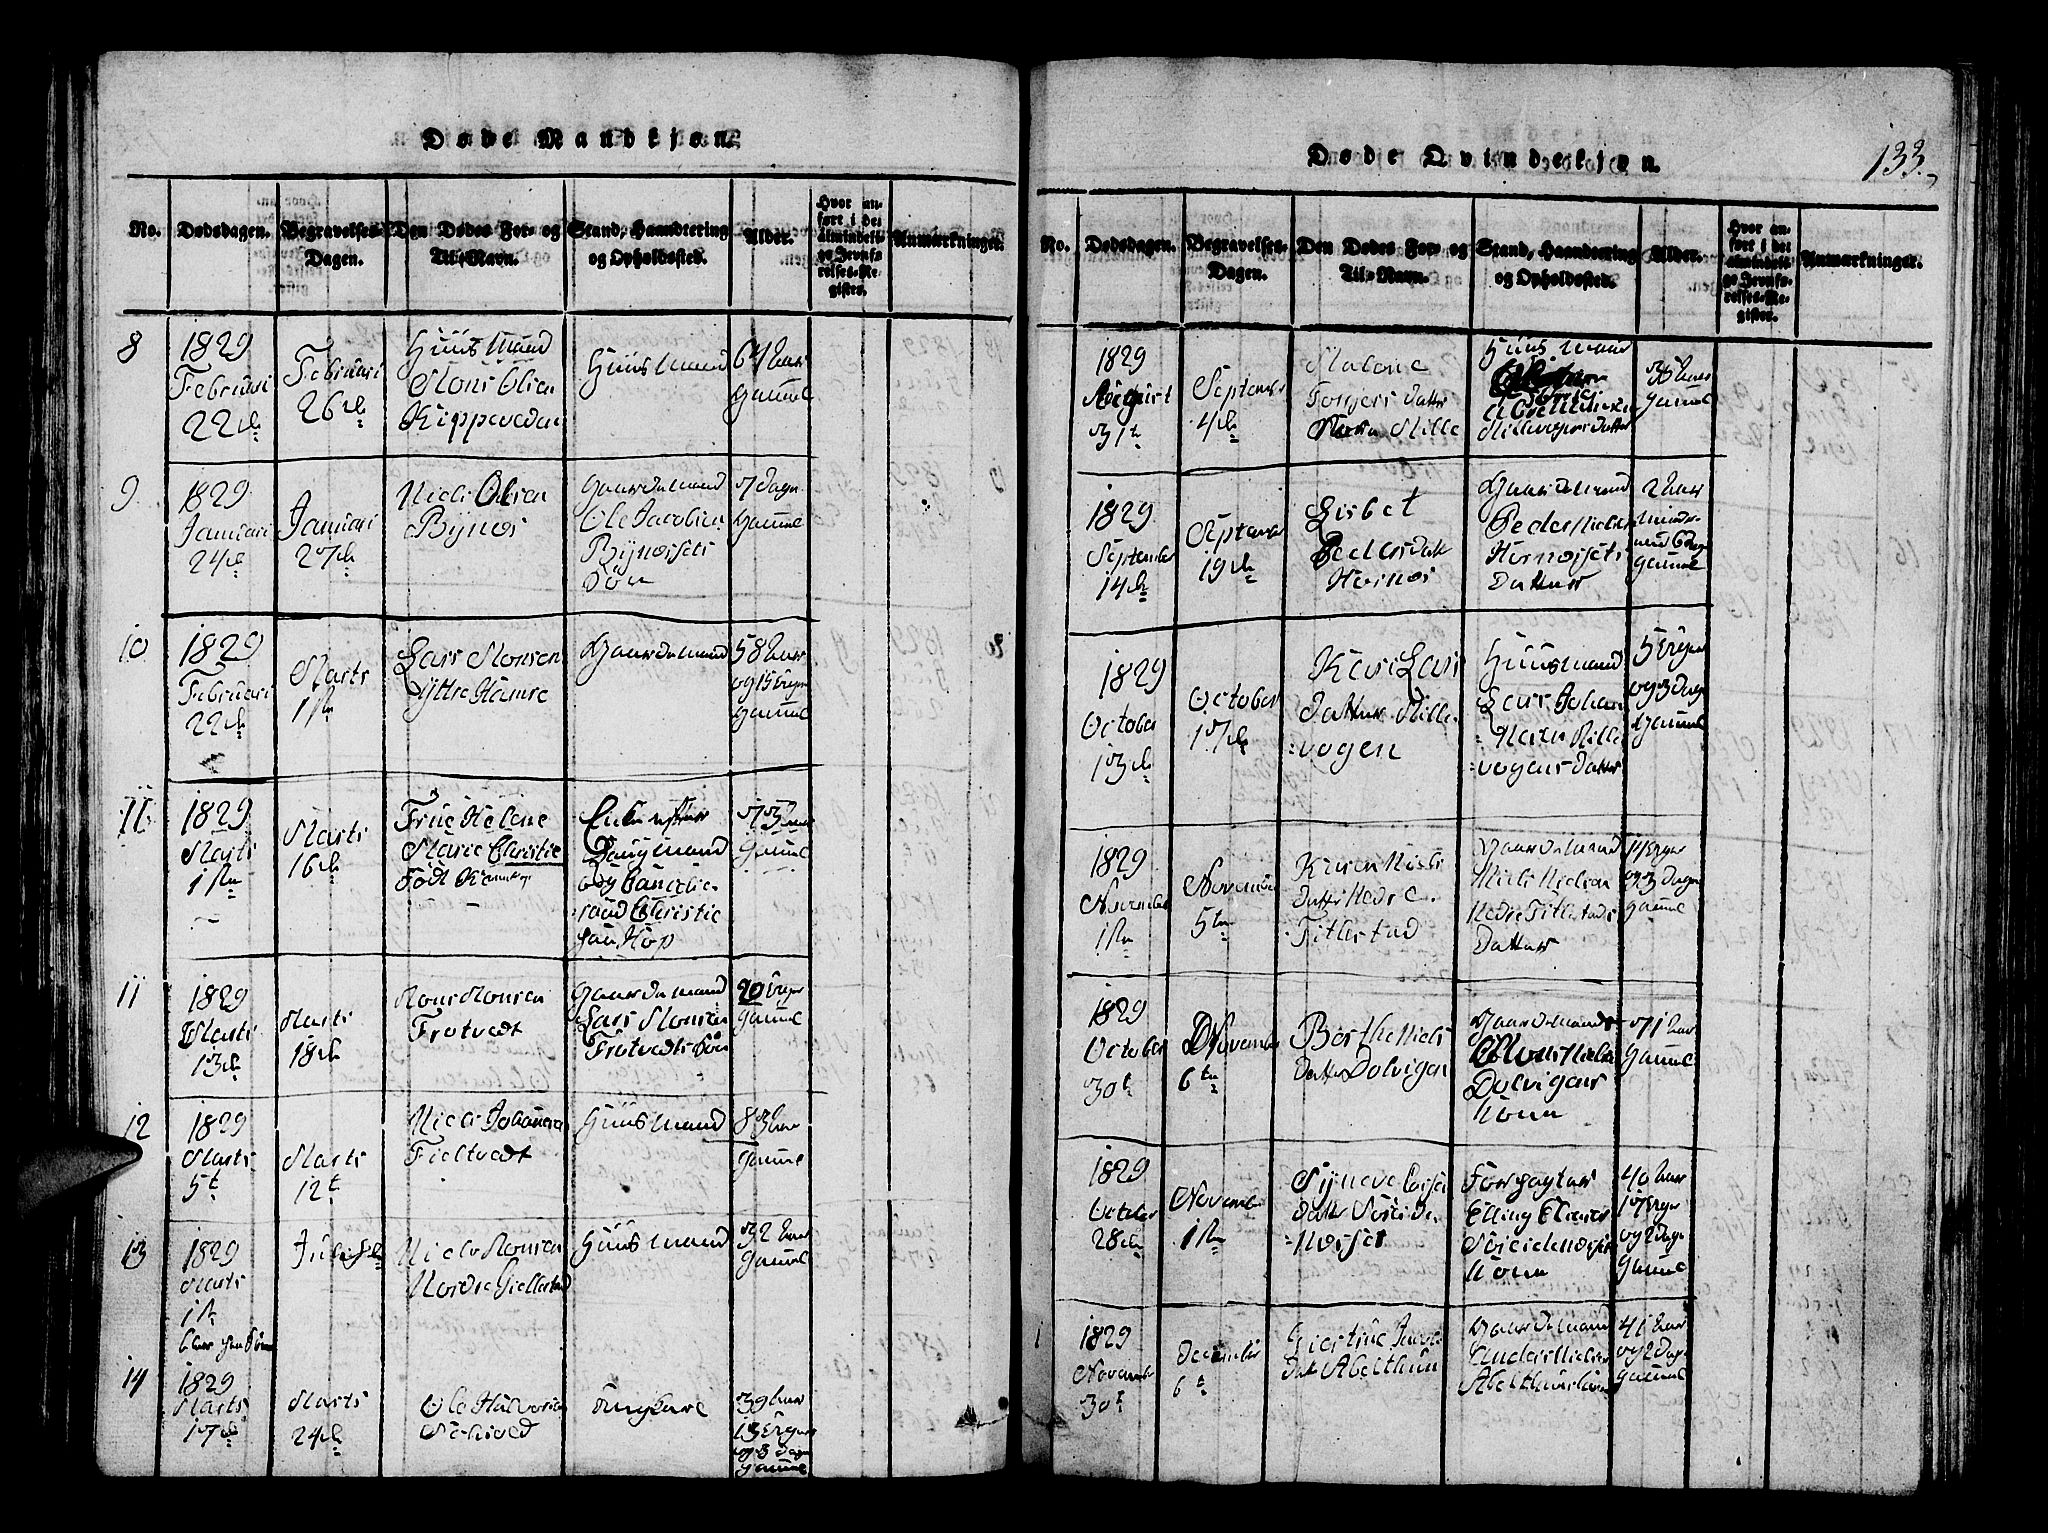 Døde Mandkjøn.
No. Dødsdagen. Begravelses-Dagen. Den Dødes For- og Til-Navn. Stand, Haandtering og Opholdssted. Alder. Hvor anført i det almindelige Jevnførelses-Register. Anmærkninger.
8
1829
Februari
22de
Februari
26de
Huus Mand
Mons Olsen
Kippersdal
Huus Mand
64 Aar
Gammel
9
1829
Januari
24de
Januari
27de
Niels Olsen
Bynes
Gaardemand
Ole Jacobsen
Bynessets
Søn
7 Dage
Gammel
10
1829
Februari
22de
Marts
1ste
Lars Monsen
Yttre Hamre
Gaardemand
58 Aar
og 15 Uger
Gammel
11
1829
Marts
1ste
Marts
16de
Frue Helene
Marie Christie
Født
Enke efter
Christie
paa Hop
73 Aar
Gammel
11
1829
Marts
13de
Marts
18de
Mons Monsen
Frotvedt
Gaardemand
Lars Monsen
Frotvedts Søn
20 Uger
Gammel
12
1829
Marts
5te
Marts
12te
Niels Johannesen
Fieltvedt
Huus Mand
83 Aar
Gammel
13
1829
Marts
1ste
Niels Monsen
Nordre Giellestad
Huus Mand
32 Aar
Gammel
14
1829
Marts
17de
Marts
24de
Ole Halvorsen
Ungkarl
39 Aar
13 Uger
og 3 Dage
Gammel
Døde Qvindekjøn.
133.
No. Dødsdagen. Begravelses-Dagen. Den Dødes For- og Til-Navn. Stand, Haandtering og Opholdssted. Alder. Hvor anført i det almindelige Jevnførelses-Register. Anmærkninger.
1829
August
31te
September
4de
Malene
Torgers Datter
Huus Mand
36 Aar
Gammel
1829
September
14de
September
19de
Lisbet
Peders Datt
Hornes
Gaardemand
Peder Nielsen
Hornessets
Datter
2 Aar
mindre
end 6 Dage
Gammel
1829
October
13de
October
17de
Kari Lars
Datter Mille
=vogen
Huusmand
Lars Johan
Mille
=vogens Datter
5 Uger
og 3 Dage
Gammel
1829
November
1ste
November
5te
Karen Niels
Datter Nedre
Titlestad
Gaardemand
Niels Nielsen
Nedre Titlestads
Datter
11 Uger
og 3 Dage
Gammel
1829
October
30te
November
6te
Berthe Niels
Datter Dolvigen
Gaardemand
Mons Nielsen
Dolvigens
Kone
71 Aar
Gammel
1829
October
28de
November
1ste
Synneve
Datter Søreide
=Nesset
Forpagter
Elling
Kone
40 Aar
17 Uger
og 2 Dage
Gammel
1829
November
30te
December
6te
Giertrue Jacobs
Dat Abelthun
Gaardemand
Anders Nielsen
Abelthuns Kone
41 Aar
og 2 Dage
Gammel